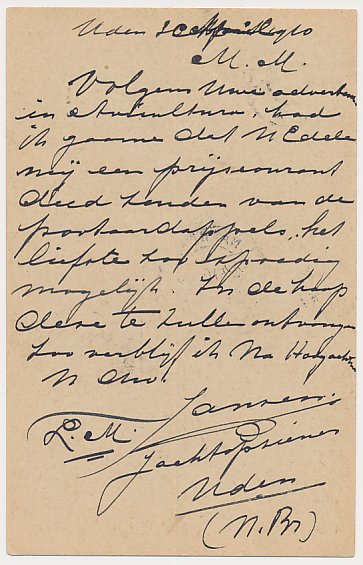 Uden 30 April 1910
M. M.
Volgens Uwe adverten
in Avicultura, had
ik gaarne dat UEdele
mij een prijscourant
deed zenden van de
pootaardappels, het
liefste zoo spoedig
mogelijk In de hoop
deze te zullen ontvangen
zoo verblijf ik Na Hoogachten
U dw.
Jansen
L. M. Jachtopziener
Uden
(N.Br)